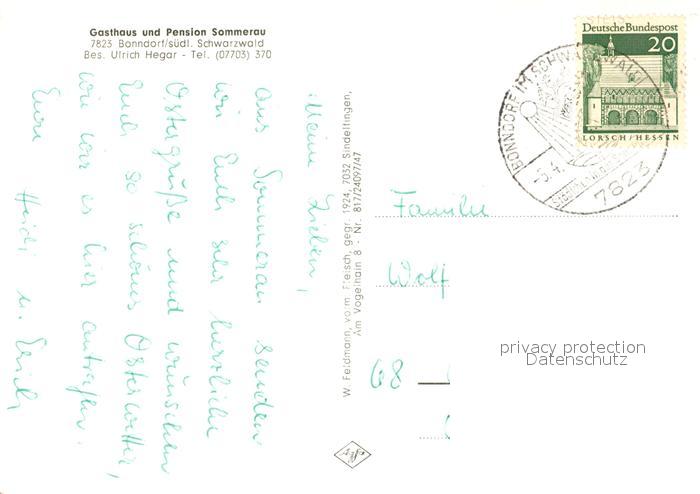 Gasthaus und Pension Sommerau
7823 Bonndorf/südl. Schwarzwald
Bes. Ulrich Hegar - Tel. (07703) 370
Meine Lieben,
aus Sommerau senden
wir Euch sehr herzliche
Ostergrüße und wünschen
Euch so schönes Osterwetter,
wie wir es hier antreffen.
Eure Heidi u. Erich
W. Feldmann, vorm. Fleisch, gegr. 1924, 7032 Sindelfingen,
Am Vogelhain 8 - Nr. 817/24097/47
Deutsche Bundespost
20
LORSCH/HESSEN
BONNDORF IM SCHWARZWALD
-5.4.
7823
Familie
Wolf
68
privacy protection
Datenschutz